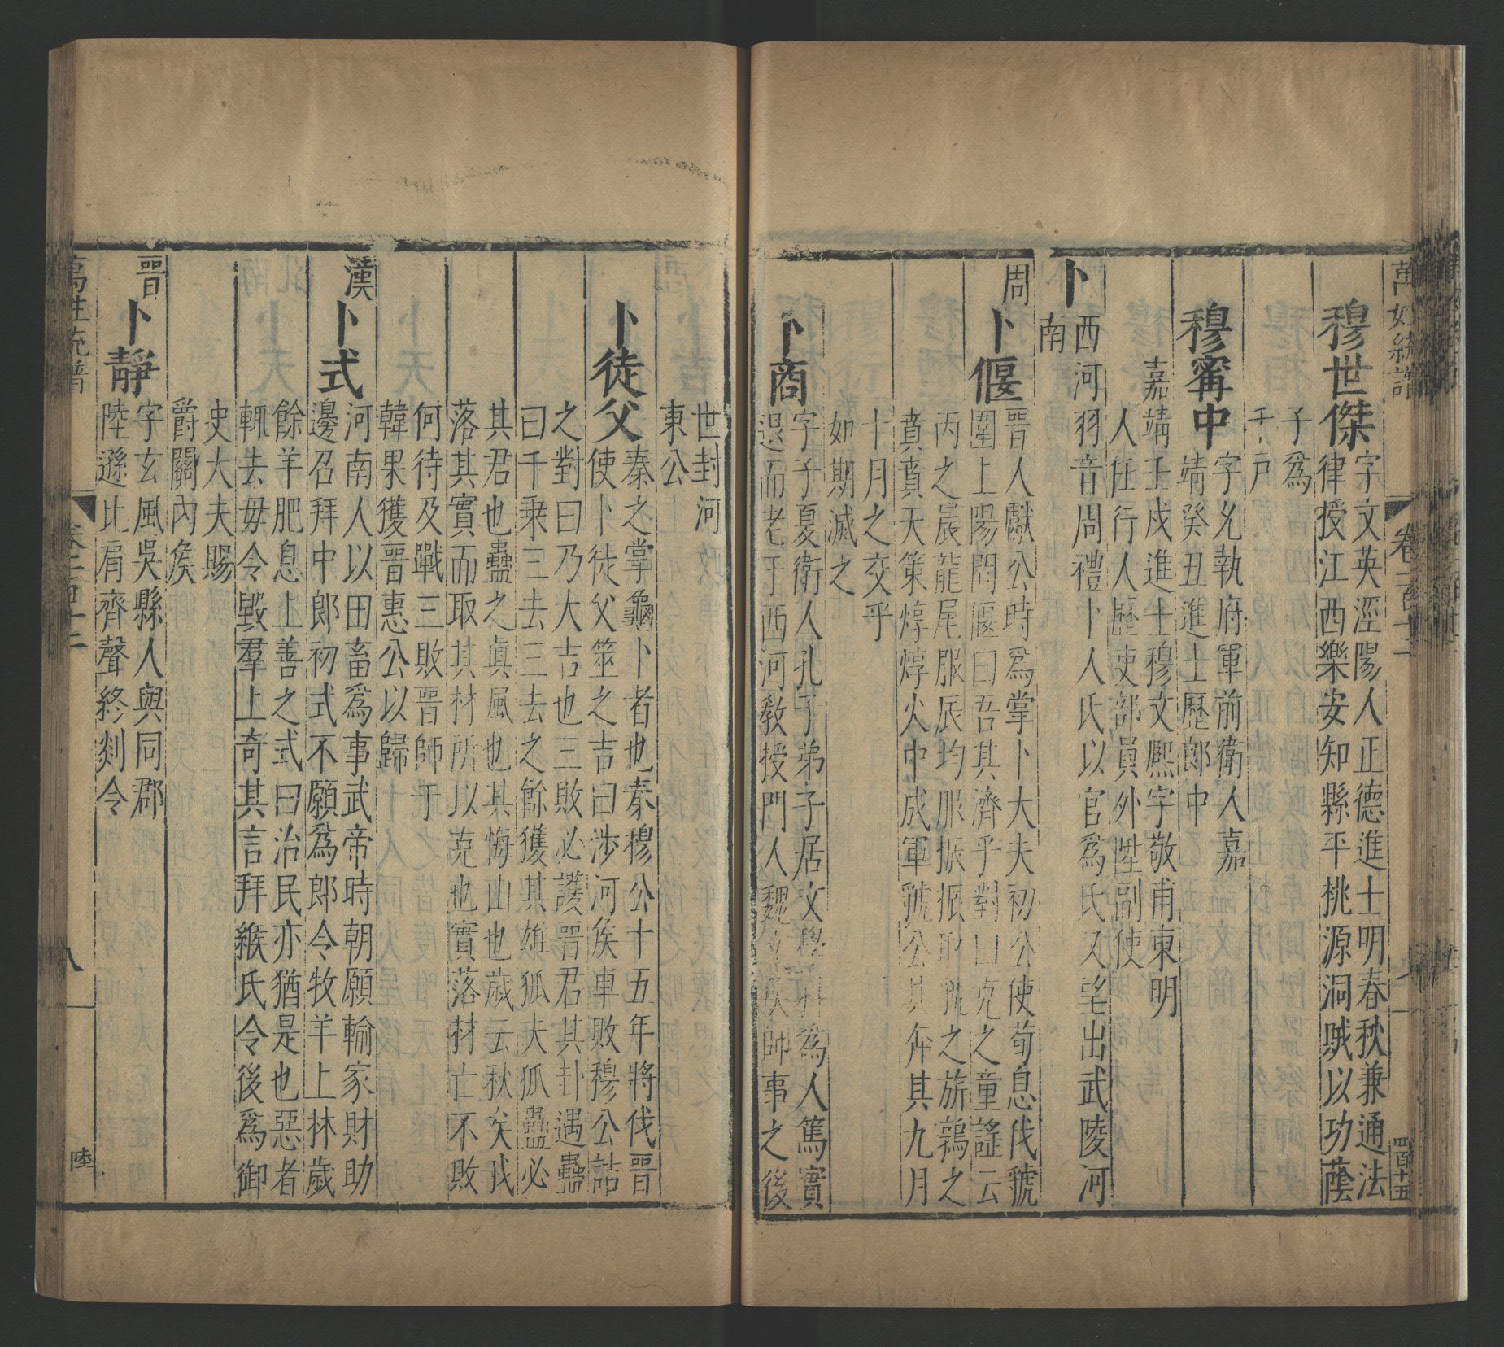 萬姓統譜
卷一百十二
四百十五
穆世傑
字文英涇陽人正德進士明春秋兼通法
律授江西樂安知縣平桃源洞賊以功蔭
子爲
千戶
穆甯中
字允執府軍前衛人嘉
靖癸丑進士歷郎中
嘉靖壬戌進士穆文熙字敬甫東明
人任行人歷吏部員外陞副使
卜
西河羽音周禮卜人氏以官爲氏又望出武陵河
南
周
卜偃
晉人獻公時爲掌卜大夫初公使荀息伐虢
圍上陽問偃曰吾其濟乎對曰克之童謡云
丙之晨龍尾伏辰均服振振取虢之旂鶉之
賁賁天策焞焞火中成軍虢公其奔其九月
十月之交乎
如期滅之
卜商
字子夏衛人孔子弟子居文學科爲人篤實
退而老于西河敎授門人魏文侯師事之後
世封河
東公
卜徒父
秦之掌龜卜者也秦穆公十五年將伐晉
使卜徒父筮之吉曰涉河侯車敗穆公詰
之對曰乃大吉也三敗必護晉君其卦遇蠱
曰千乗三去三去之餘獲其雄狐夫狐蠱必
其君也蠱之貞風也其悔山也歲云秋矣我
落其實而取其材所以克也實落材亡不敗
何待及戰三敗晉師于
韓果獲晉惠公以歸
漢
卜式
河南人以田畜爲事武帝時朝願輸家財助
邊召拜中郎初式不願爲郎令牧羊上林歲
餘羊肥息上善之式曰治民亦猶是也惡者
輒去毋令毁羣上奇其言拜緱氏令後爲御
史大夫賜
爵關內侯
晉
卜靜
字玄風吳縣人與同郡
陸遜比肩齊聲終剡令
萬姓統譜
卷一百十二
八
陸